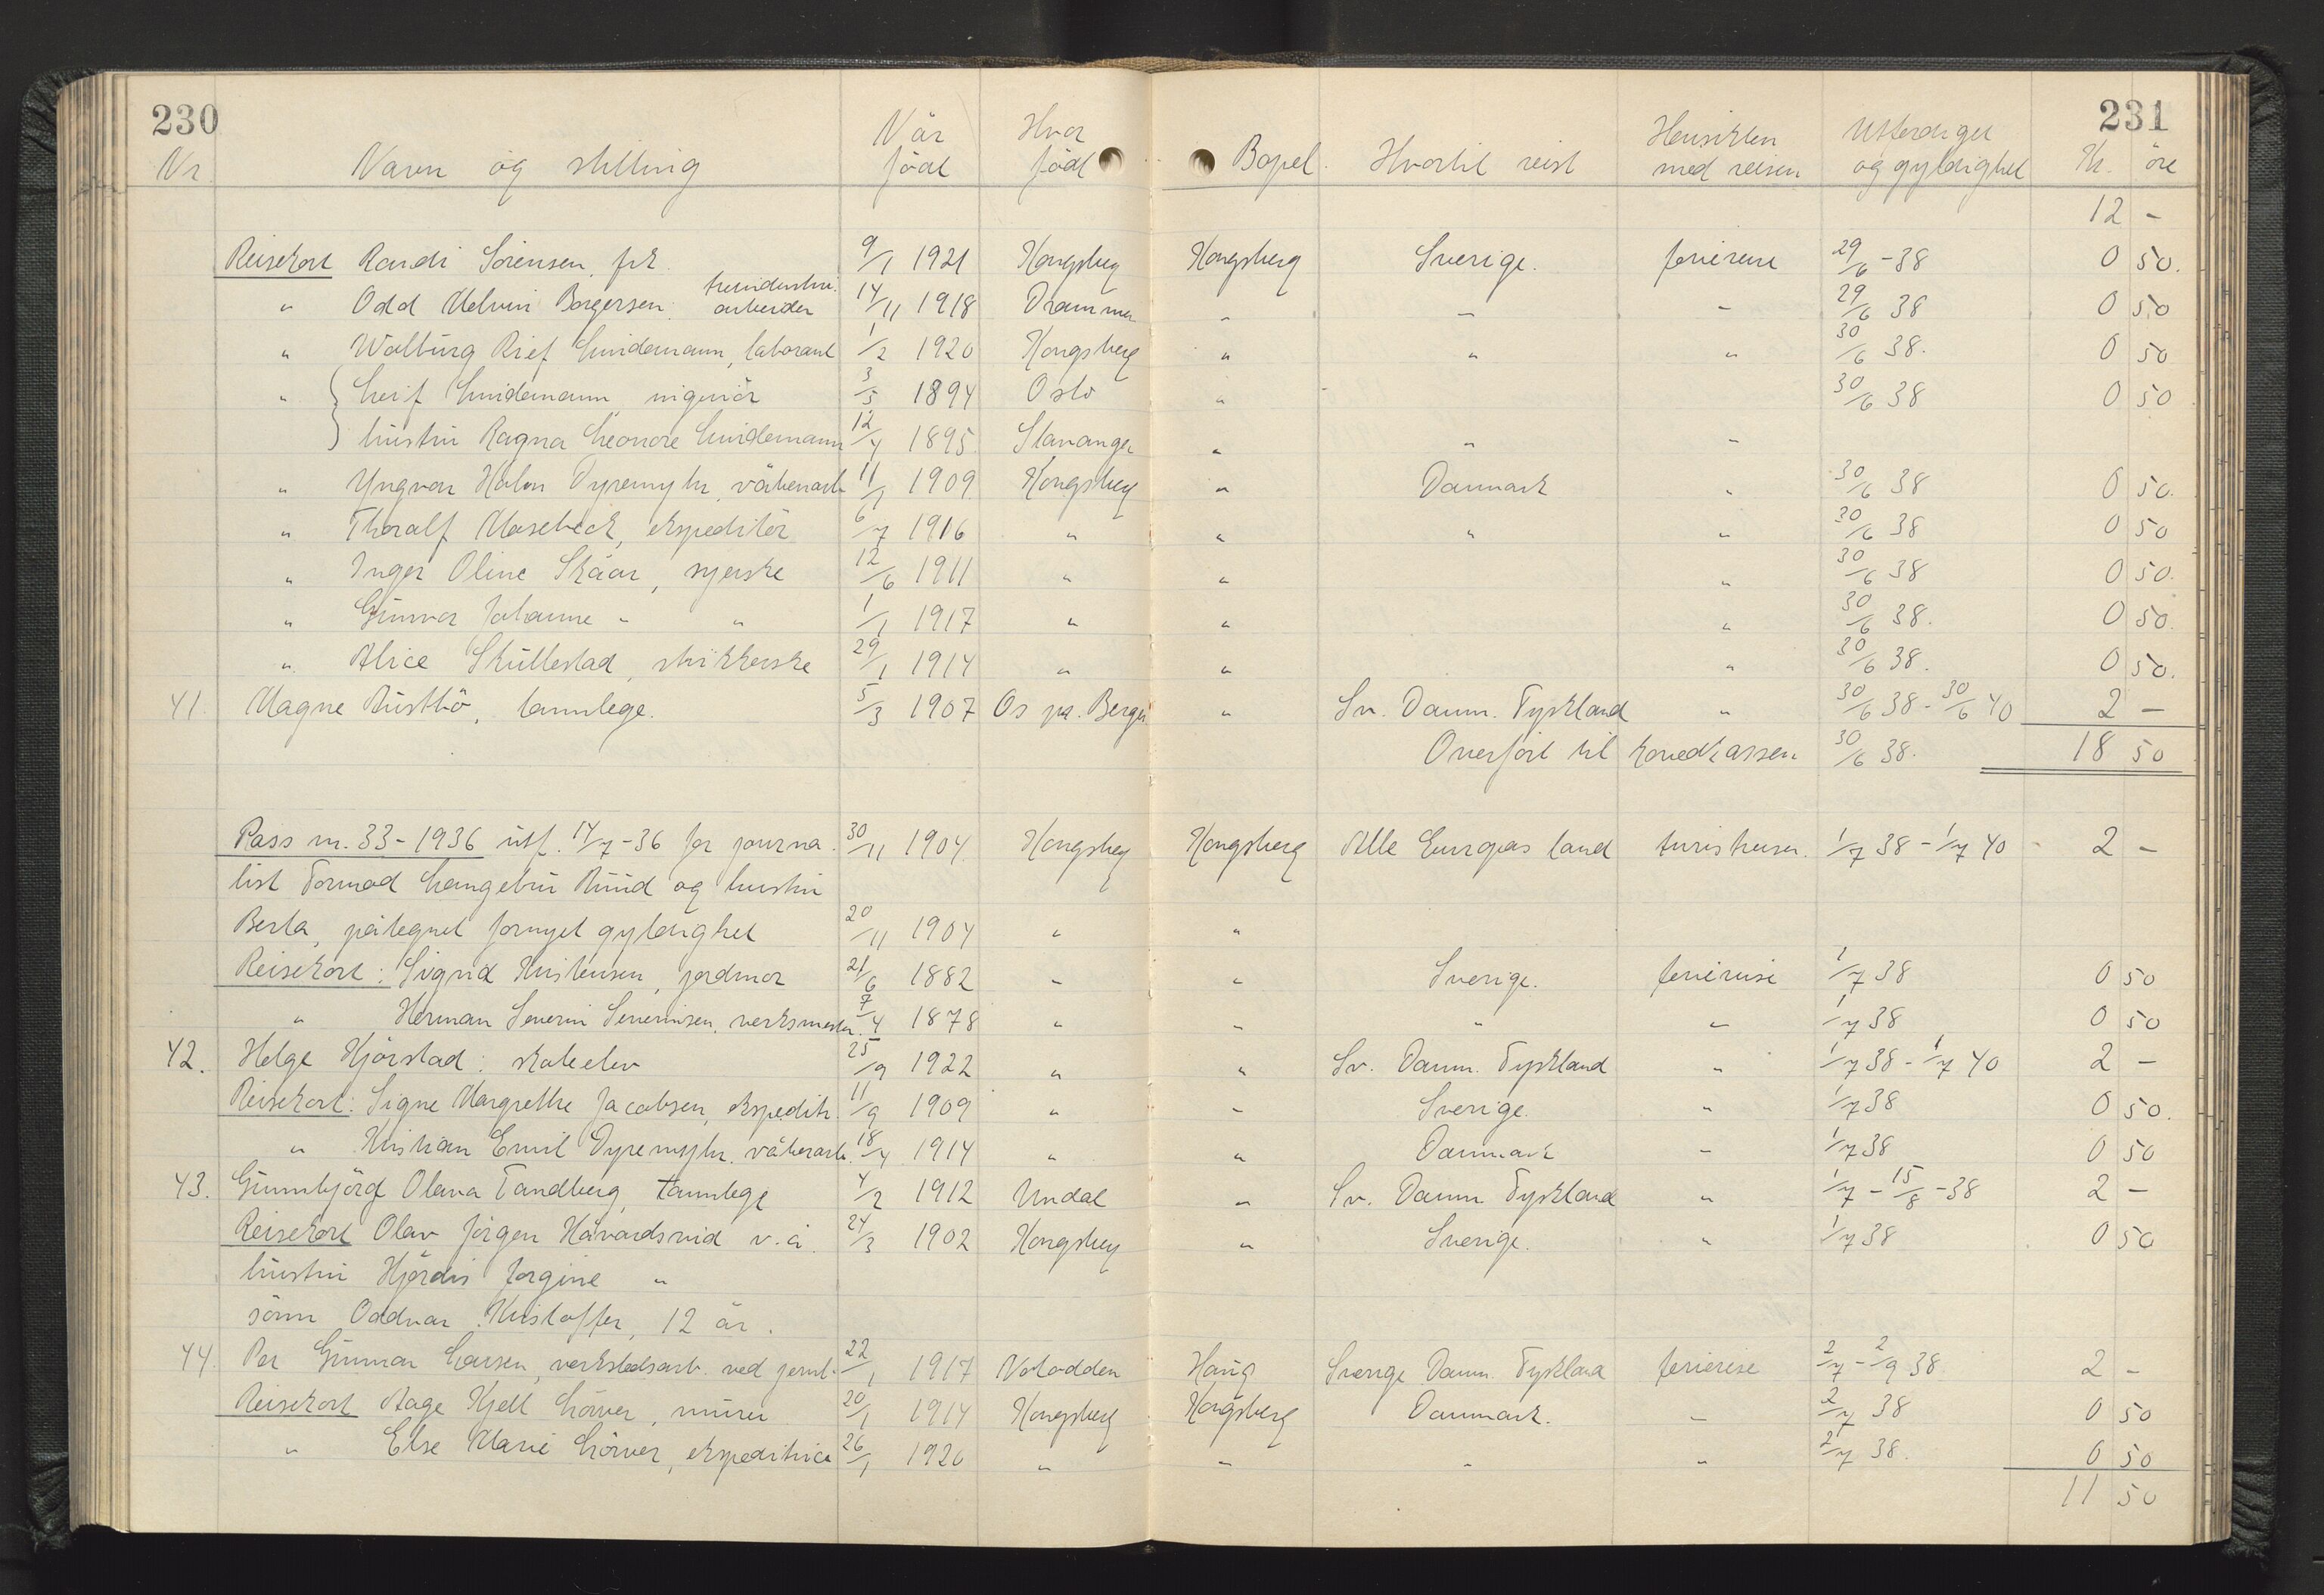 230 231
Nr. Navn og stilling Når född Hvor född Bopel. Hvortil reist Hensikten med reisen Utferdiget og gyldighet Kr. öre
12 -
Reisekort Randi Sörensen, frk. 9/1 1921 Kongsberg Kongsberg Sverige. feriereise 29/6-38 0 50.
" Odd Melvin Borgersen, treindustriarbeider 14/11 1918 Drammen " " " 29/6 38 0 50
" Walburg Rief Lindemann, laborant 1/2 1920 Kongsberg " " " 30/6 38. 0 50
" { Leif Lindemann ingeniör 3/5 1894 Oslo " 30/6 38 0 50
hustru Ragna Leonore Lindemann 12/4 1895 Stavanger " " "
" Yngvar Holm Dyremyhr, våbenarb. 11/1 1909 Kongsberg " Danmark " 30/6 38 0 50.
" Thoralf Masebeck, ekspeditör 6/7 1916 " " " " 30/6 38 0 50
" Inger Oline Skåar, syerske 12/6 1911 " " " 30/6 38 0 50.
" Gunvor Johanne " " 1/1 1917 " " " 30/6 38. 0 50.
" Alice Skullestad, strikkerske 29/1 1914 " " " 30/6 38. 0 50.
41. Magne Rustbö, tannlege. 5/3 1907 Os pr. Bergen " Sv. Danm. Tyskland " 30/6 38 - 30/6 40 2 -
Overfört til hovedkassen 30/6 38. 18 50
Pass nr. 33-1936 utf. 14/7-36 for journa- 30/11 1904 Kongsberg Kongsberg Alle Europas land turistreiser. 1/7 38 - 1/7 40 2 -
list Tormod Langebru Ruud og hustru
Berta, påtegnet fornyet gyldighet 20/11 1904 " "
Reisekort: Sigrid Kristensen, jordmor 21/6 1882 " " Sverige. feriereise 1/7 38 0 50
" Herman Severin Severinsen, verksmester. 7/4 1878 " " " " 1/7 38 0 50
42. Helge Hjörstad: skoleelev 25/9 1922 " " Sv. Danm. Tyskland " 1/7 38 - 1/7 40 2 -
Reisekort: Signe Margrethe Jacobsen, ekspeditr. 11/9 1909 " " Sverige. " 1/7 38 0 50.
" Kristian Emil Dyremyhr. våbenarb. 18/4 1914 " " Danmark " 1/7 38 0 50
43. Gunnbjörg Olava Tandberg, tannlege 4/2 1912 Undal " Sv. Danm Tyskland " 1/7 - 15/8 - 38 2 -
Reisekort Olav Jörgen Håvardsrud v.a. 24/3 1902 Kongsberg " Sverige. " 1/7 38 0 50
hustru Hjördis Jorgine "
sönn Oddvar Kristoffer, 12 år.
44. Per Gunnar Larsen, verkstedsarb. ved jernb. 22/1 1917 Notodden Haug Sverige Danm. Tyskland feriereise 2/7 - 2/9 38 2 -
Reisekort Aage Kjell Lörver, murer 20/1 1914 Kongsberg Kongsberg Danmark. " 2/7 38 0 50
" Else Marie Lörver, ekspeditrice 26/1 1920 " " " " 2/7 38. 0 50
11 50